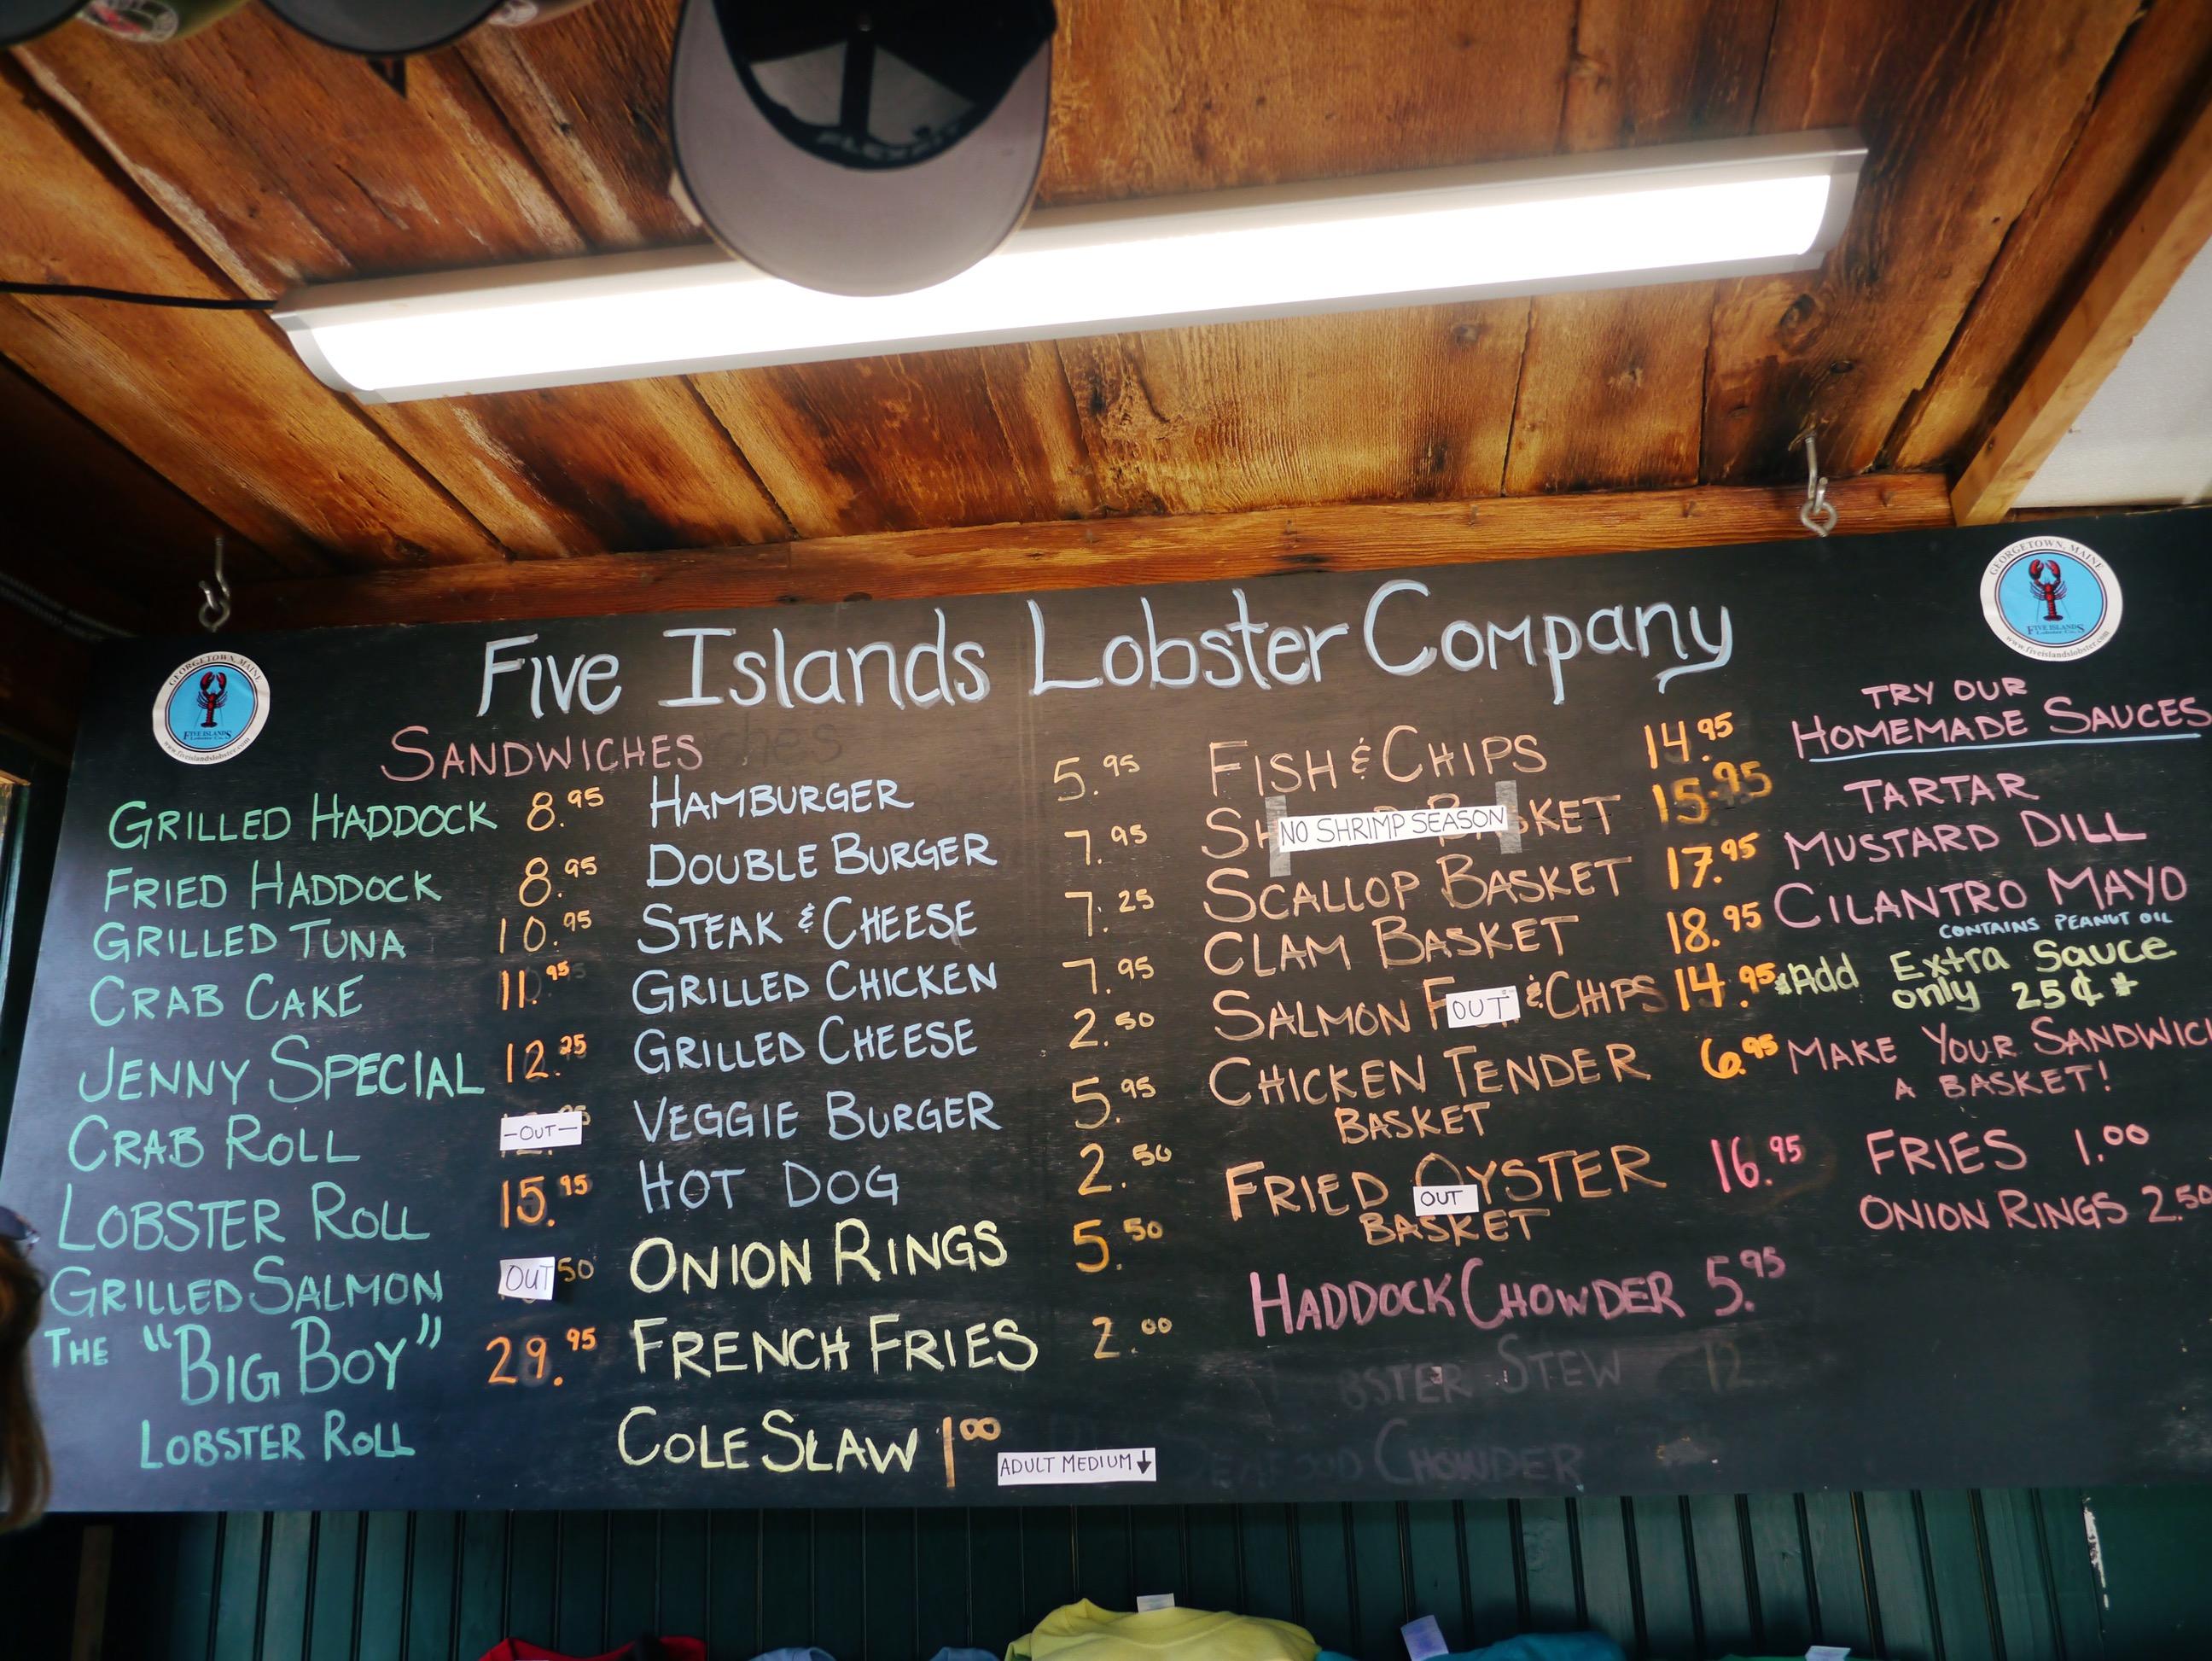 Five Islands Lobster Company
GEORGETOWN, MAINE
FIVE ISLANDS
Lobster Co.
www.fiveislandslobster.com
GEORGETOWN, MAINE
FIVE ISLANDS
Lobster Co.
www.fiveislandslobster.com
SANDWICHES
GRILLED HADDOCK 8.95
FRIED HADDOCK 8.95
GRILLED TUNA 10.95
CRAB CAKE 11.95
JENNY SPECIAL 12.25
CRAB ROLL -OUT-
LOBSTER ROLL 15.95
GRILLED SALMON OUT 50
THE "BIG BOY" 29.95
LOBSTER ROLL
HAMBURGER 5.95
DOUBLE BURGER 7.95
STEAK & CHEESE 7.25
GRILLED CHICKEN 7.95
GRILLED CHEESE 2.50
VEGGIE BURGER 5.95
HOT DOG 2.50
ONION RINGS 5.50
FRENCH FRIES 2.00
COLE SLAW 1.00
ADULT MEDIUM ↓
FISH & CHIPS 14.95
NO SHRIMP SEASON 15.95
SCALLOP BASKET 17.95
CLAM BASKET 18.95
SALMON OUT & CHIPS 14.95
CHICKEN TENDER 6.95
BASKET
FRIED OYSTER 16.95
OUT
BASKET
HADDOCK CHOWDER 5.95
STEW 12
CHOWDER
TRY OUR
HOMEMADE SAUCES
TARTAR
MUSTARD DILL
CILANTRO MAYO
CONTAINS PEANUT OIL
*Add Extra Sauce
only 25¢*
MAKE YOUR SANDWIC
A BASKET!
FRIES 1.00
ONION RINGS 2.50